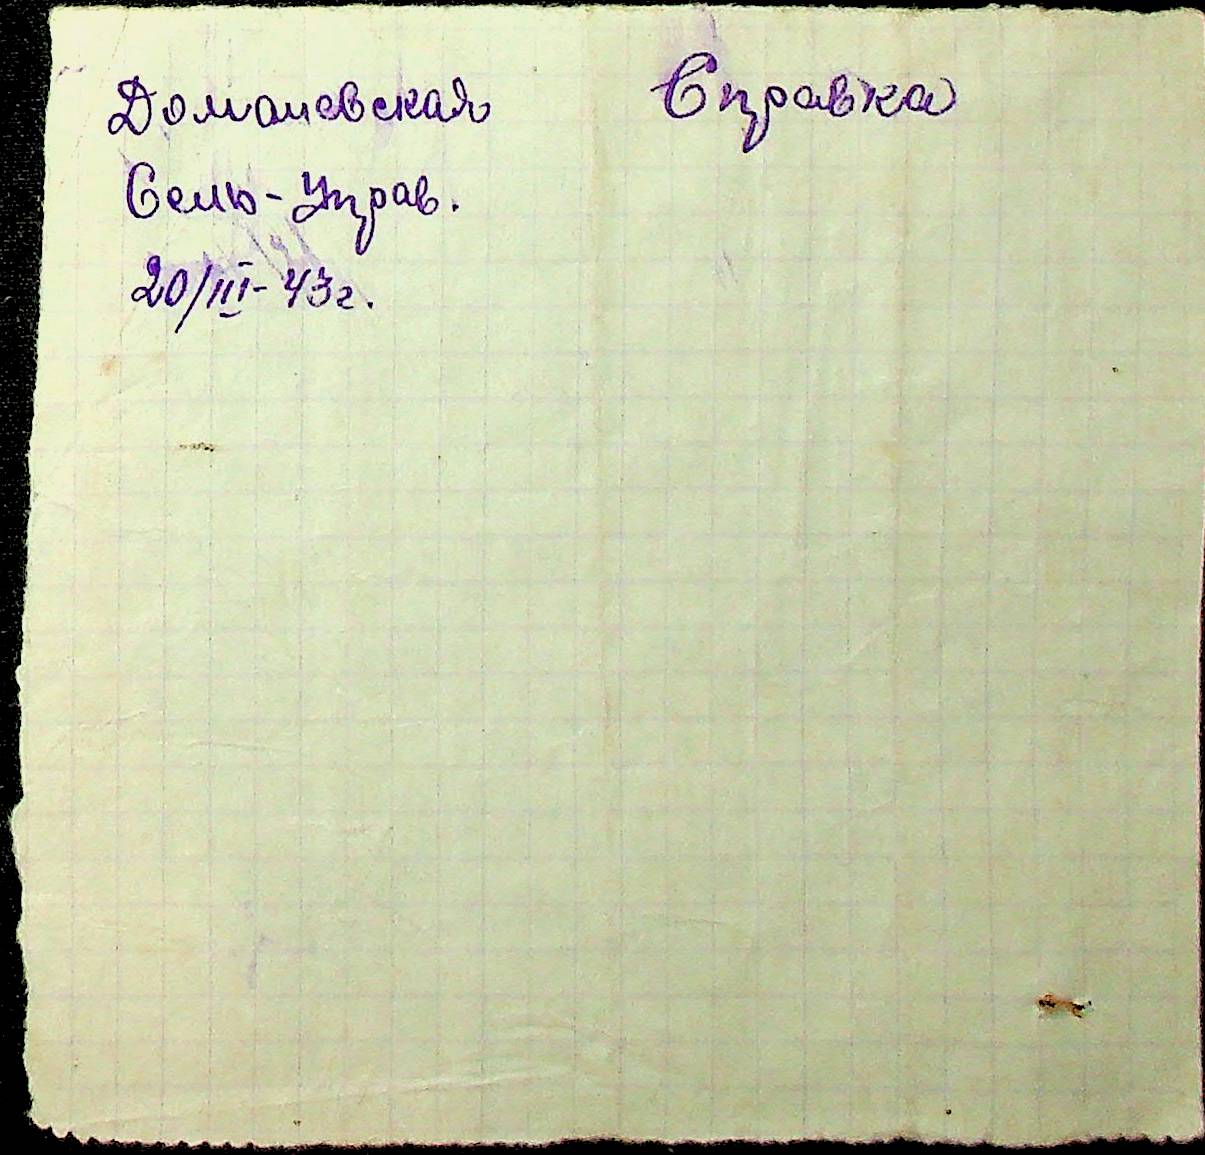 Доманевская
Справка
Сель-Управ.
20/III-43г.